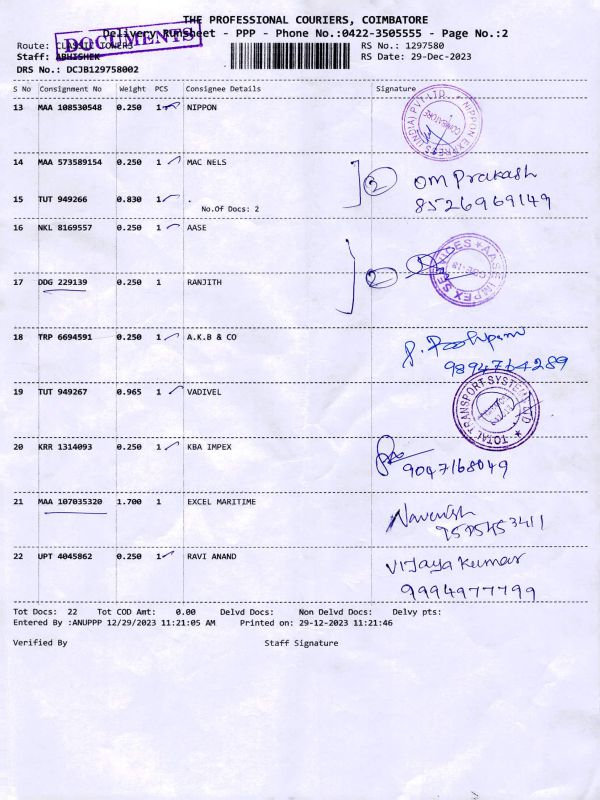 THE PROFESSIONAL COURIERS, COIMBATORE
Delivery RunSheet - PPP - Phone No.:0422-3505555 - Page No.:2
DOCUMENTS
Route: CLASSIC TONERS
RS No.: 1297580
Staff: ABHISHEK
RS Date: 29-Dec-2023
DRS No.: DCJB129758002
S No Consignment No Weight PCS Consignee Details Signature
13 MAA 108530548 0.250 1 NIPPON
NIPPON EXPRESS (INDIA) PVT LTD. COIMBATORE
14 MAA 573589154 0.250 1 MAC NELS
2 OM Prakash
15 TUT 949266 0.830 1 .
8526969149
No.Of Docs: 2
16 NKL 8169557 0.250 1 AASE
AASE IMPEX SERVICES CBE-18
17 DDG 229139 0.250 1 RANJITH
2
18 TRP 6694591 0.250 1 A.K.B & CO
9894764289
19 TUT 949267 0.965 1 VADIVEL
TOTAL TRANSPORT SYSTEMS LTD
20 KRR 1314093 0.250 1 KBA IMPEX
9047168049
21 MAA 107035320 1.700 1 EXCEL MARITIME
22 UPT 4045862 0.250 1 RAVI ANAND
Vijaya Kumar
9994977799
Tot Docs: 22 Tot COD Amt: 0.00 Delvd Docs: Non Delvd Docs: Delvy pts:
Entered By :ANUPPP 12/29/2023 11:21:05 AM Printed on: 29-12-2023 11:21:46
Verified By Staff Signature